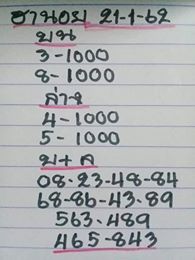 ฮานอย 21-1-62
บน
3-1000
8-1000
ล่าง
4-1000
5-1000
บ+ล
08-23-48-84
68-86-43-89
563-489
465-843